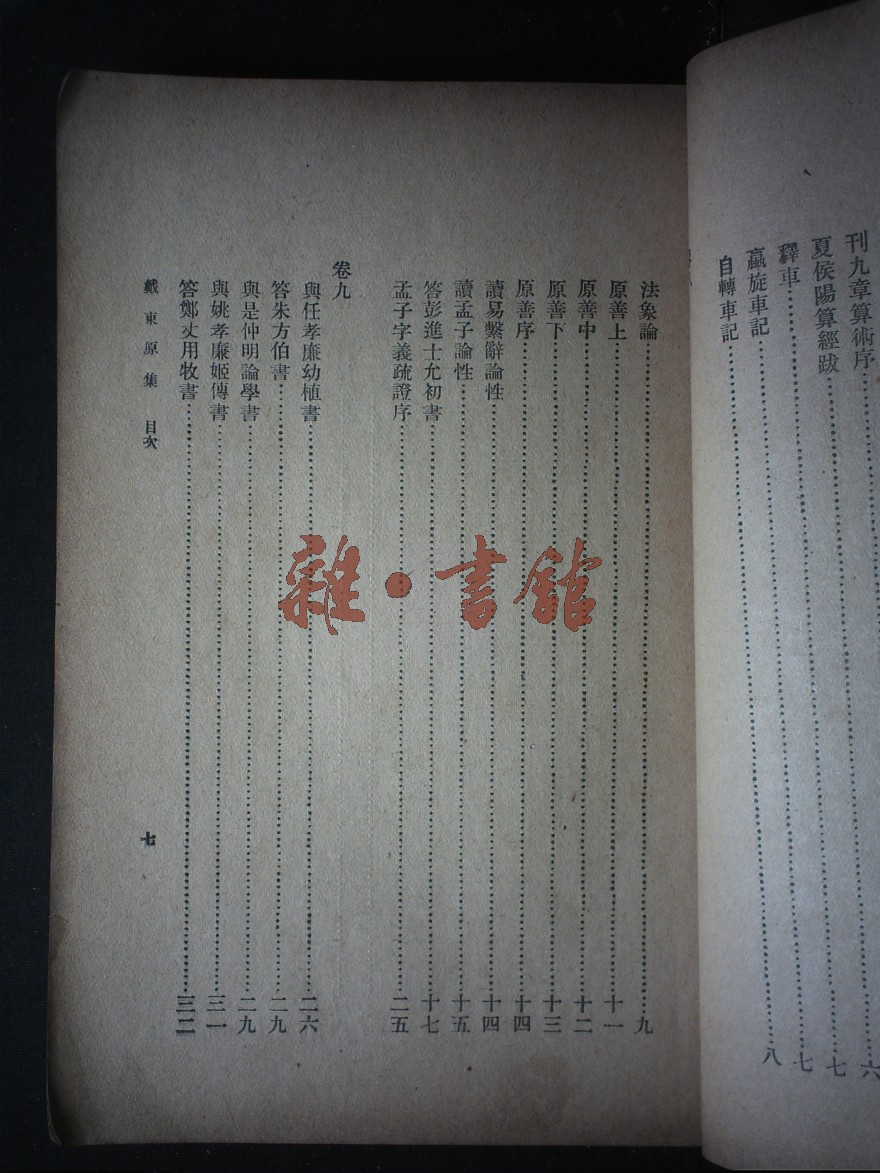 刊九章算術序……六
夏侯陽算經跋……七
釋車……七
蠃旋車記……八
自轉車記……八
法象論……九
原善上……十一
原善中……十二
原善下……十三
原善序……十四
讀易繫辭論性……十四
讀孟子論性……十五
答彭進士允初書……十七
孟子字義疏證序……二五
卷九
與任孝廉幼植書……二六
答朱方伯書……二九
與是仲明論學書……二九
與姚孝廉姬傳書……三一
答鄭丈用牧書……三二
戴東原集 目次
七
雜·書館